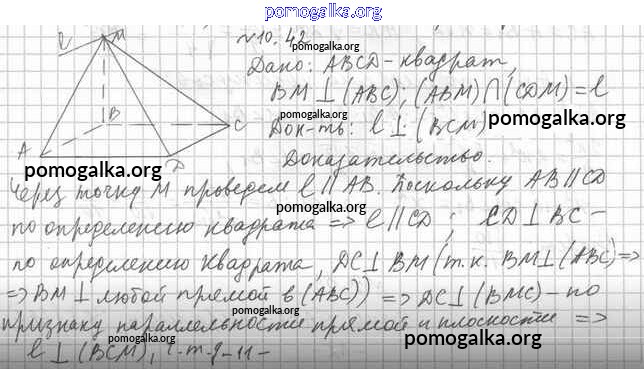 pomogalka.org
№10.42
pomogalka.org
Дано: ABCD - квадрат,
BM ⊥ (ABC); (ABM) ∩ (CDM) = l
pomogalka.org
Док-ть: l ⊥ (BCM)
pomogalka.org
Доказательство.
M
B
C
A
D
pomogalka.org
Через точку M проведем l || AB. Поскольку AB || CD
pomogalka.org
по определению квадрата => l || CD; CD ⊥ BC -
по определению квадрата, DC ⊥ BM (т.к. BM ⊥ (ABC) =>
pomogalka.org
=> BM ⊥ любой прямой в (ABC)) => DC ⊥ (BMC) - по
pomogalka.org
признаку параллельности прямой и плоскости =>
pomogalka.org
l ⊥ (BCM), ч.т.д.
pomogalka.org